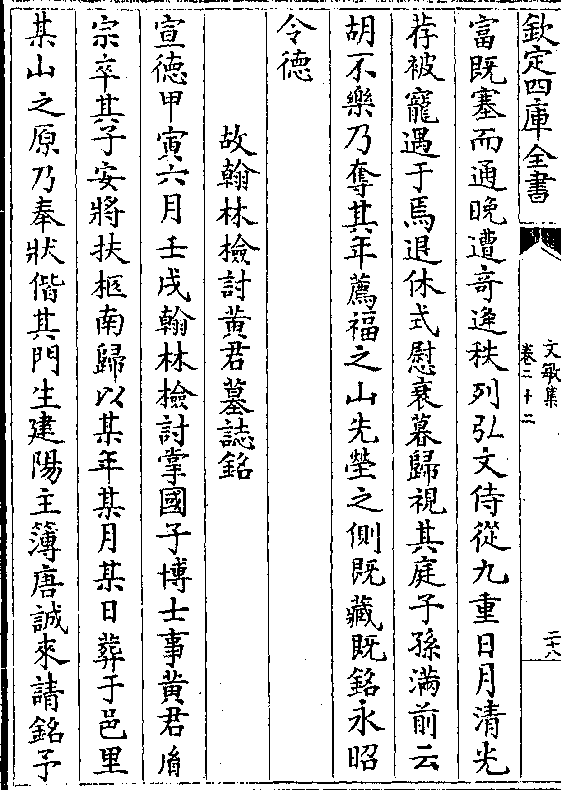 欽定四庫全書
文敏集
卷二十二
二十八
富既塞而通晚遭竒逢秩列弘文侍從九重日月清光
荐被寵遇于焉退休式慰衰暮歸視其庭子孫滿前云
胡不樂乃奪其年薦福之山先塋之側既藏既銘永昭
令德
故翰林檢討黄君墓誌銘
宣德甲寅六月壬戌翰林檢討掌國子博士事黄君
宗卒其子安將扶柩南歸以某年某月某日葬于邑里
某山之原乃奉狀偕其門生建陽主簿唐誠來請銘予